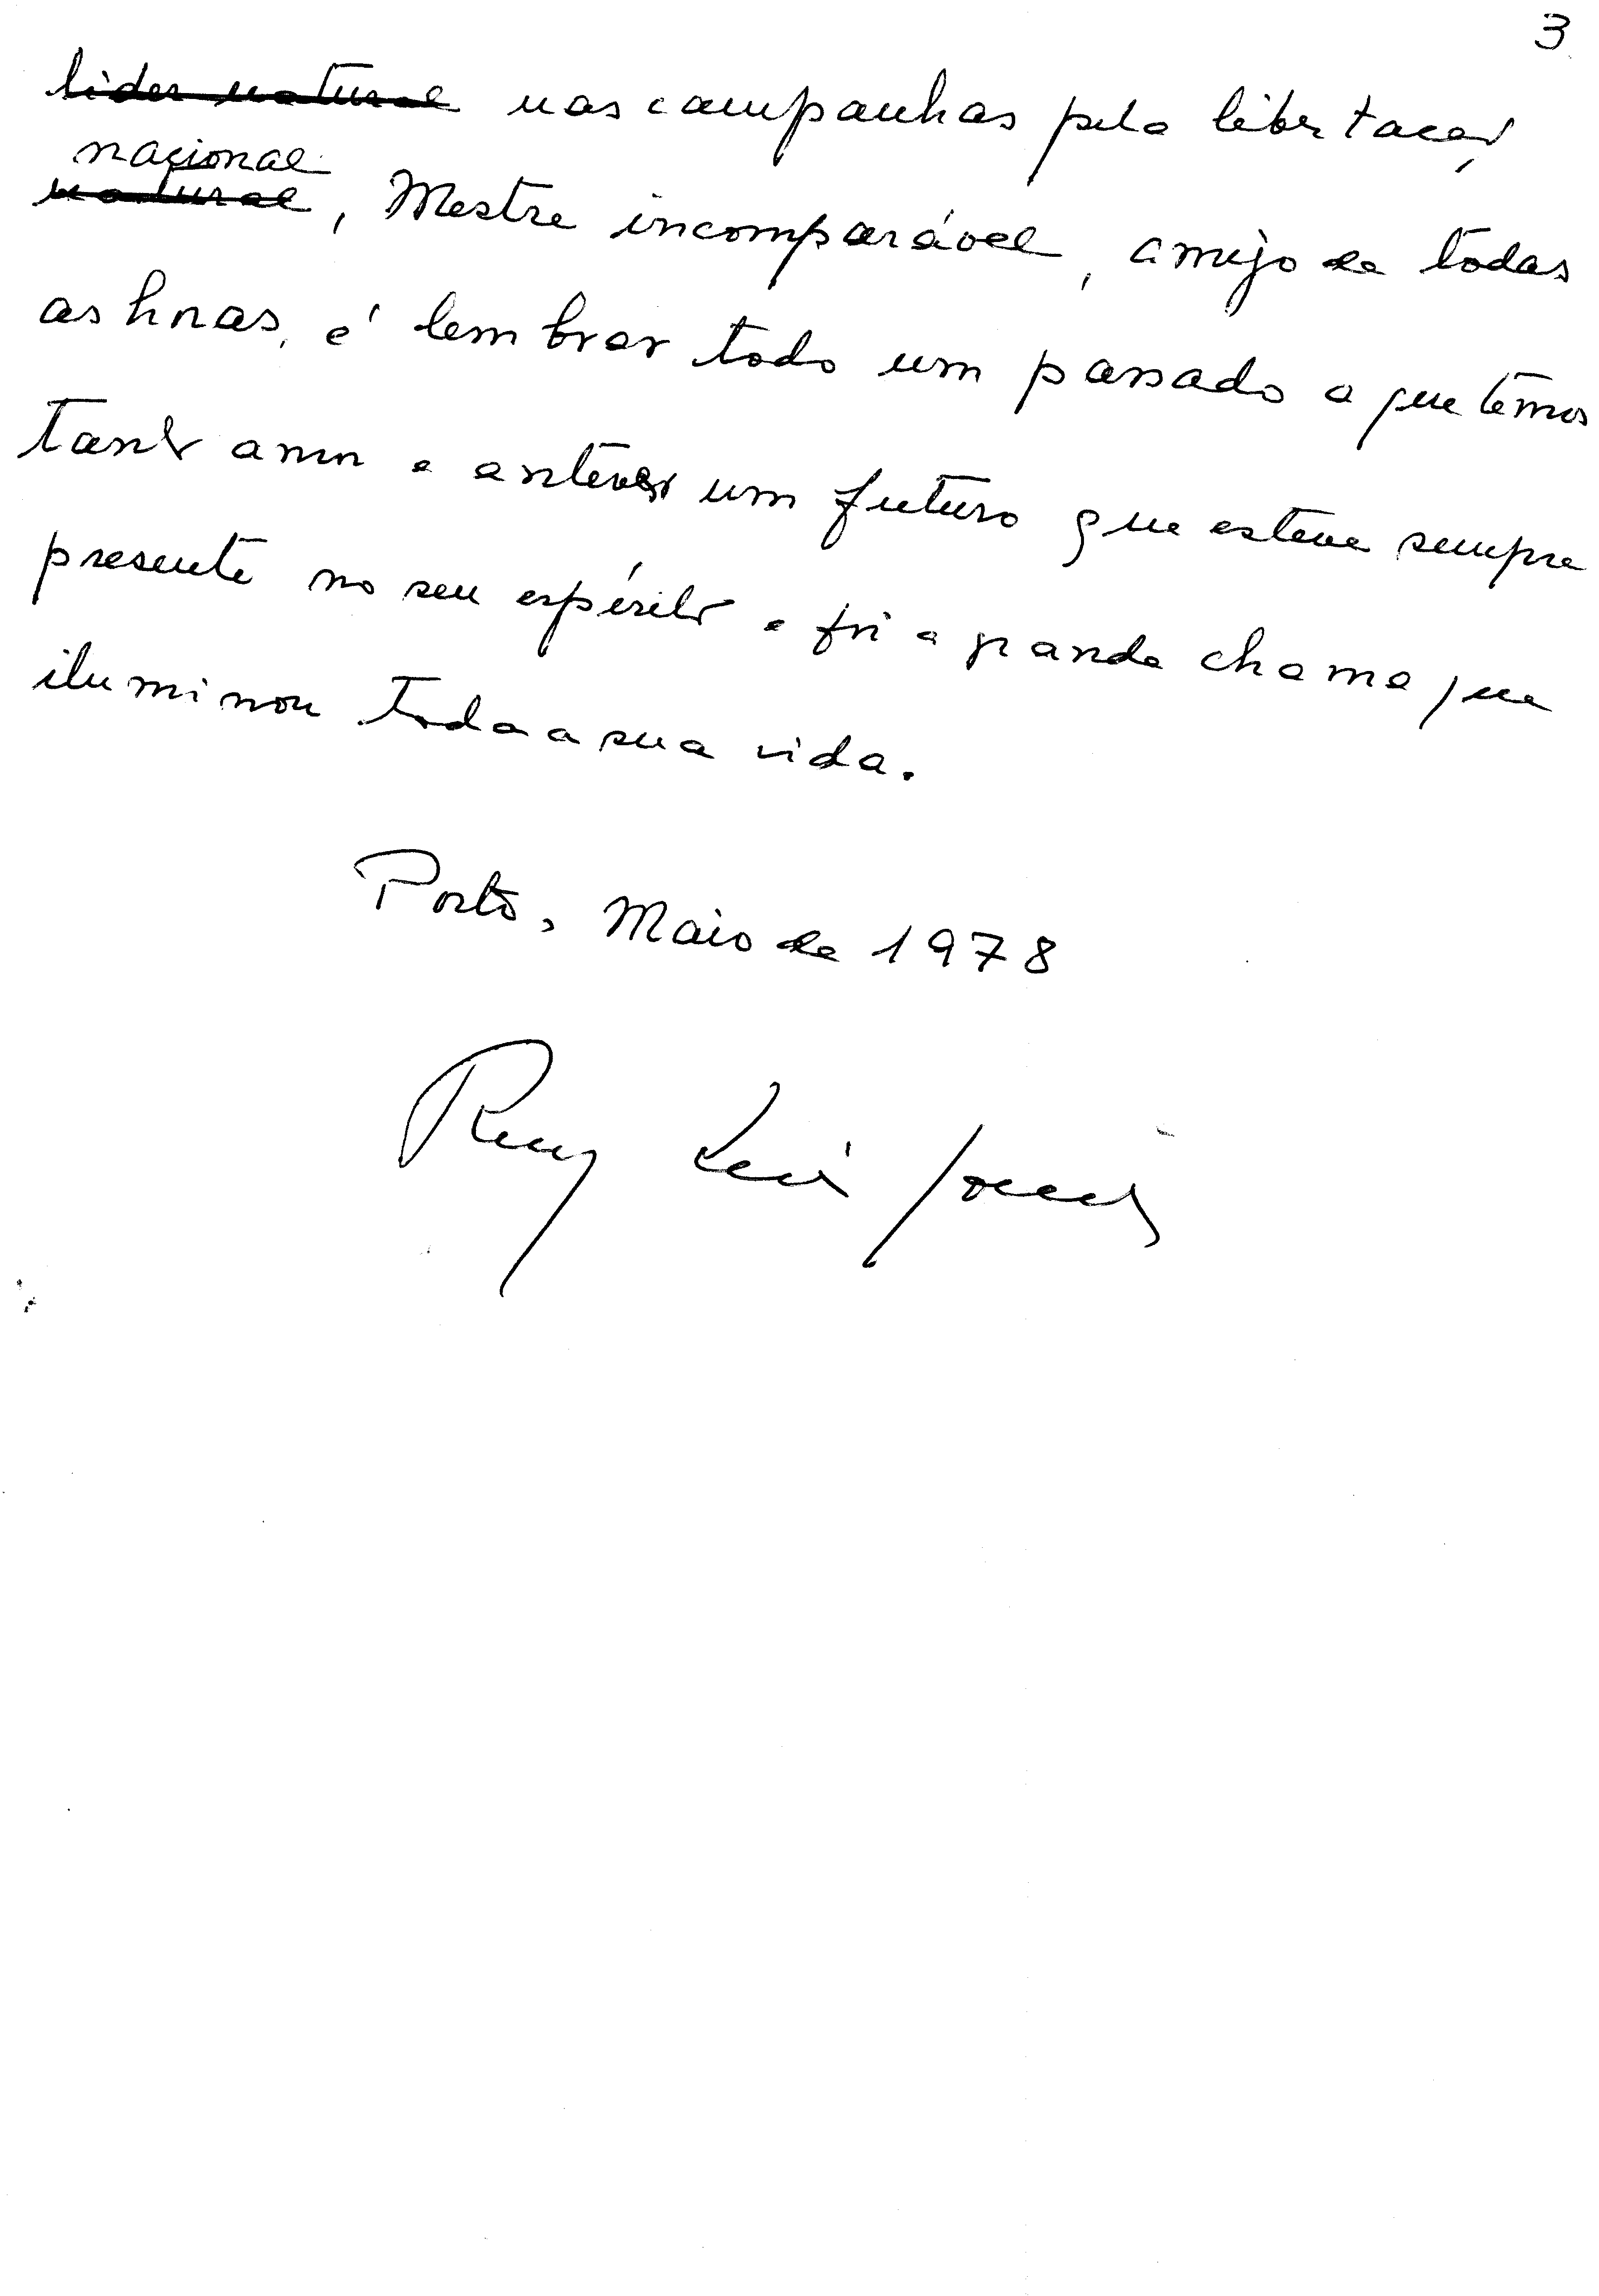 3
líder natural nas campanhas pela libertação
nacional
natural, Mestre incomparável, amigo de todas
as horas, é lembrar todo um passado a que temos
tanto amor e antever um futuro que esteve sempre
presente no seu espírito e foi a grande chama que
iluminou toda a sua vida.
Porto, Maio de 1978
Ruy Luís Gomes